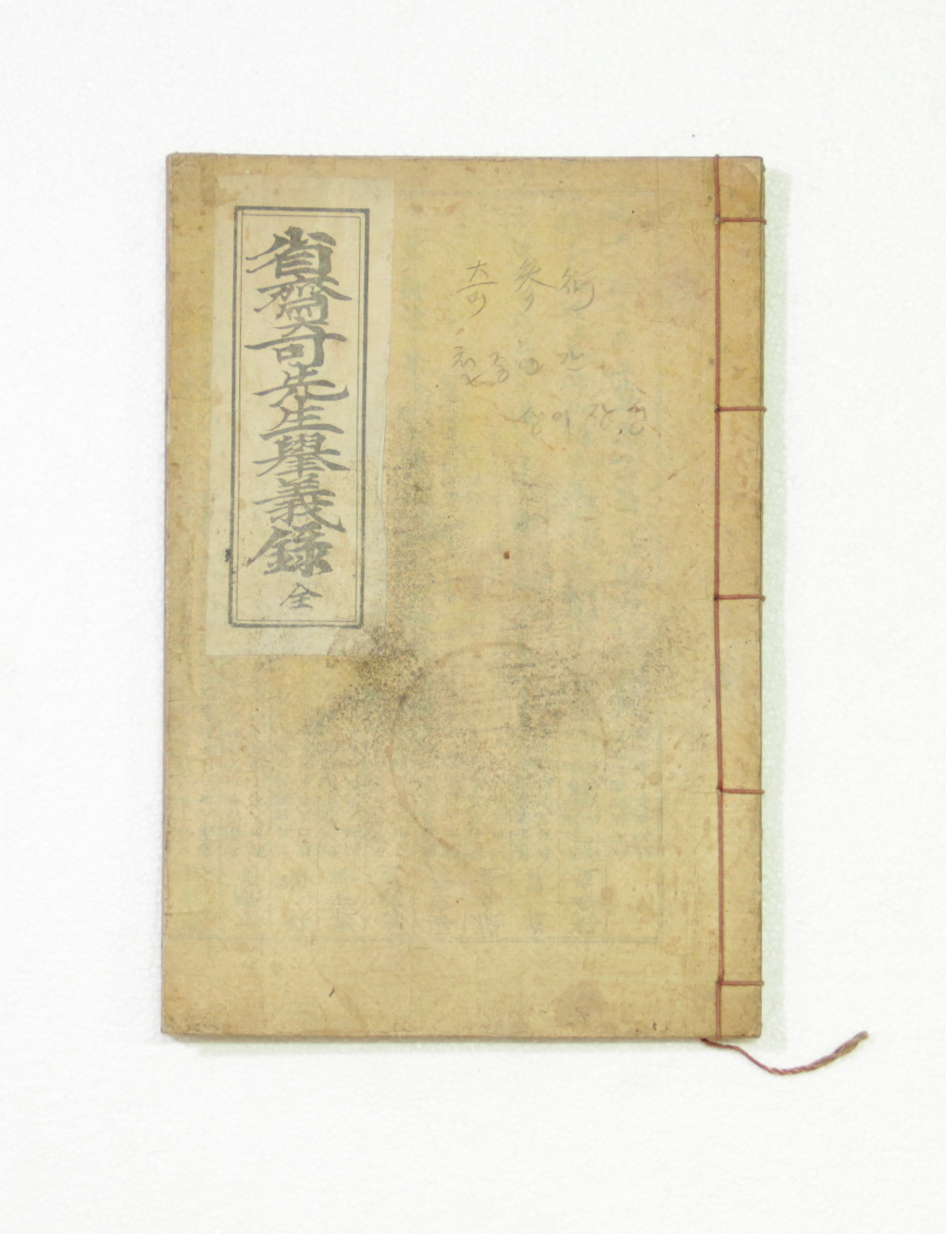 省齋奇先生擧義錄
全
奇參衍